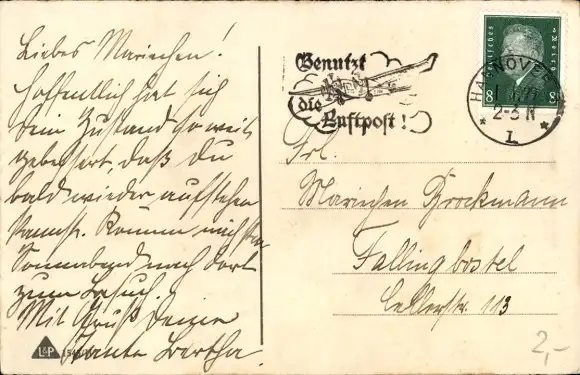 Liebes Mariechen!
Hoffentlich hat sich
Dein Zustand so weit
gebessert, daß Du
bald wieder aufstehen
kannst. Komme nächsten
Sonnabend nach dort
zum Besuch.
Mit Gruß Deine
Tante Bertha.
L&P
Benutzt
die
Luftpost!
Deutsches Reich
8 8
HANNOVER
2-3 N
* 1 *
Frl.
Mariechen Brockmann
Fallingbostel
Cellerstr. 113
2,-